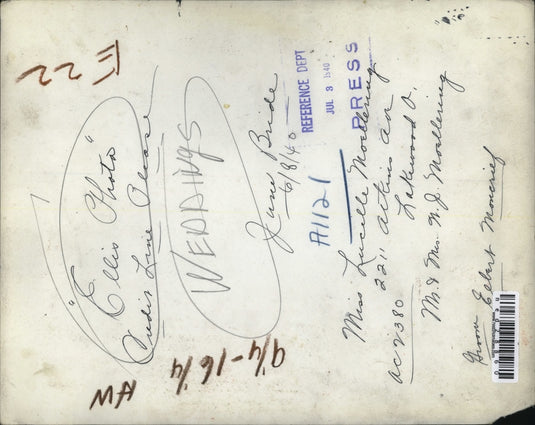 E 22
"Ellis Photo"
Credit Line Please
WEDDINGS
June Bride
6/8/40
REFERENCE DEPT
JUL 3 1940
PRESS
A1121
Miss Lucille Moellering
2211 Atkins Av
Lakewood O.
AC 2380
Mr. & Mrs. N.J. Moellering
Groom Elbert Moncrief
9/4-16/4
HW